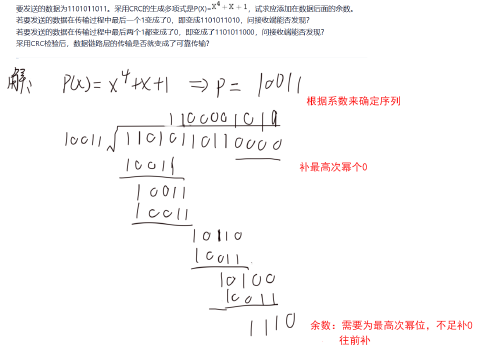 要发送的数据为1101011011。采用CRC的生成多项式是P(X)=X⁴+X+1，试求应添加在数据后面的余数。
若要发送的数据在传输过程中最后一个1变成了0，即变成1101011010，问接收端能否发现？
若要发送的数据在传输过程中最后两个1都变成了0，即变成了1101011000，问接收端能否发现？
采用CRC检验后，数据链路层的传输是否就变成了可靠传输？
解： P(x)=x⁴+x+1 ⇒ P= 10011
根据系数来确定序列
1100001010
10011√11010110110000
10011
补最高次幂个0
10011
10011
10110
10011
10100
10011
1110
余数：需要为最高次幂位，不足补0
往前补